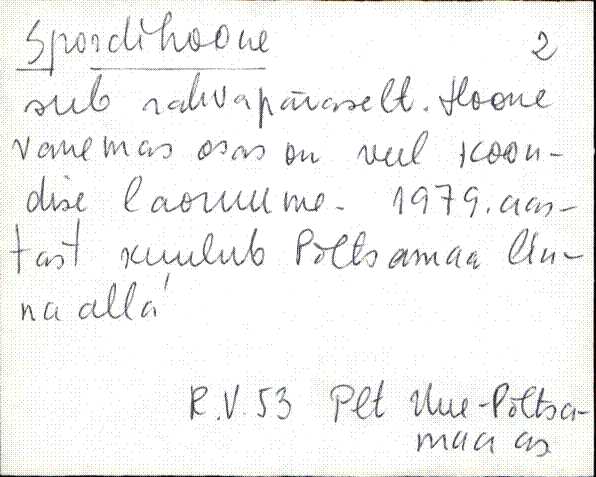 Spordihoone 2
sub rahvapäraselt. Hoone
vanemas osas on veel koon-
dise laoruume. 1979. aas-
tast kuulub Põltsamaa lin-
na alla
R.V. 53 Plt Uue-Põltsa-
maa as